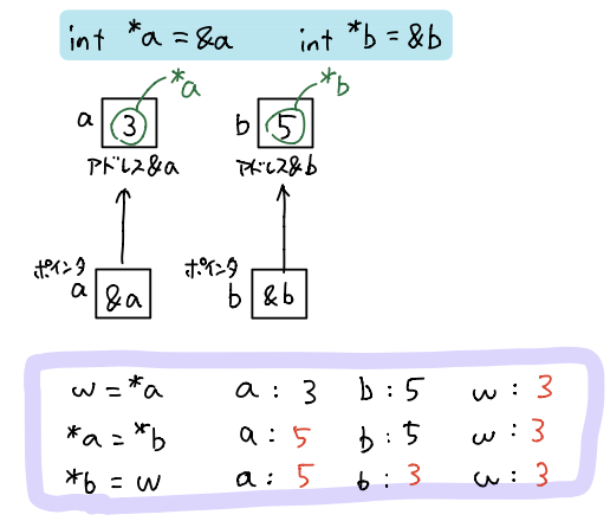 int *a = &a int *b = &b
*a *b
a 3 b 5
アドレス&a アドレス&b
ポインタ ポインタ
a &a b &b
w = *a a : 3 b : 5 w : 3
*a = *b a : 5 b : 5 w : 3
*b = w a : 5 b : 3 w : 3